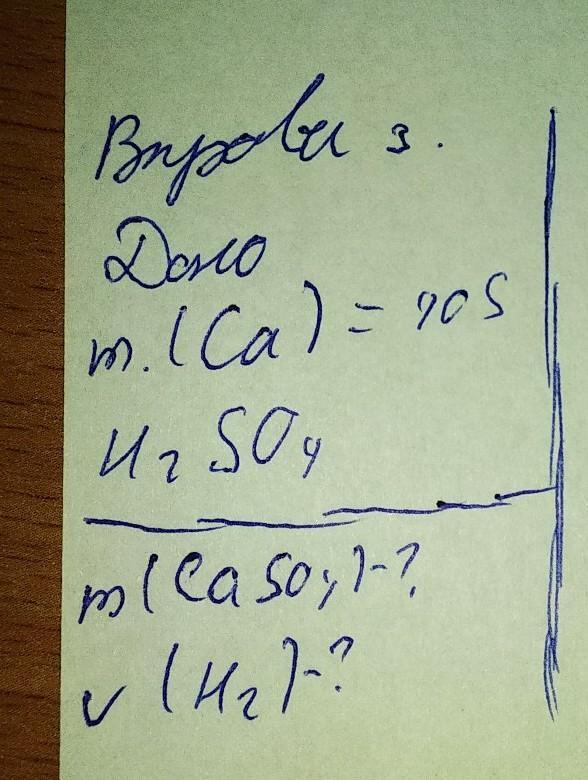 Вправа 3.
Дано
m.(Ca) = 90 S
H2SO4
m(CaSO4)-?
V(H2)-?